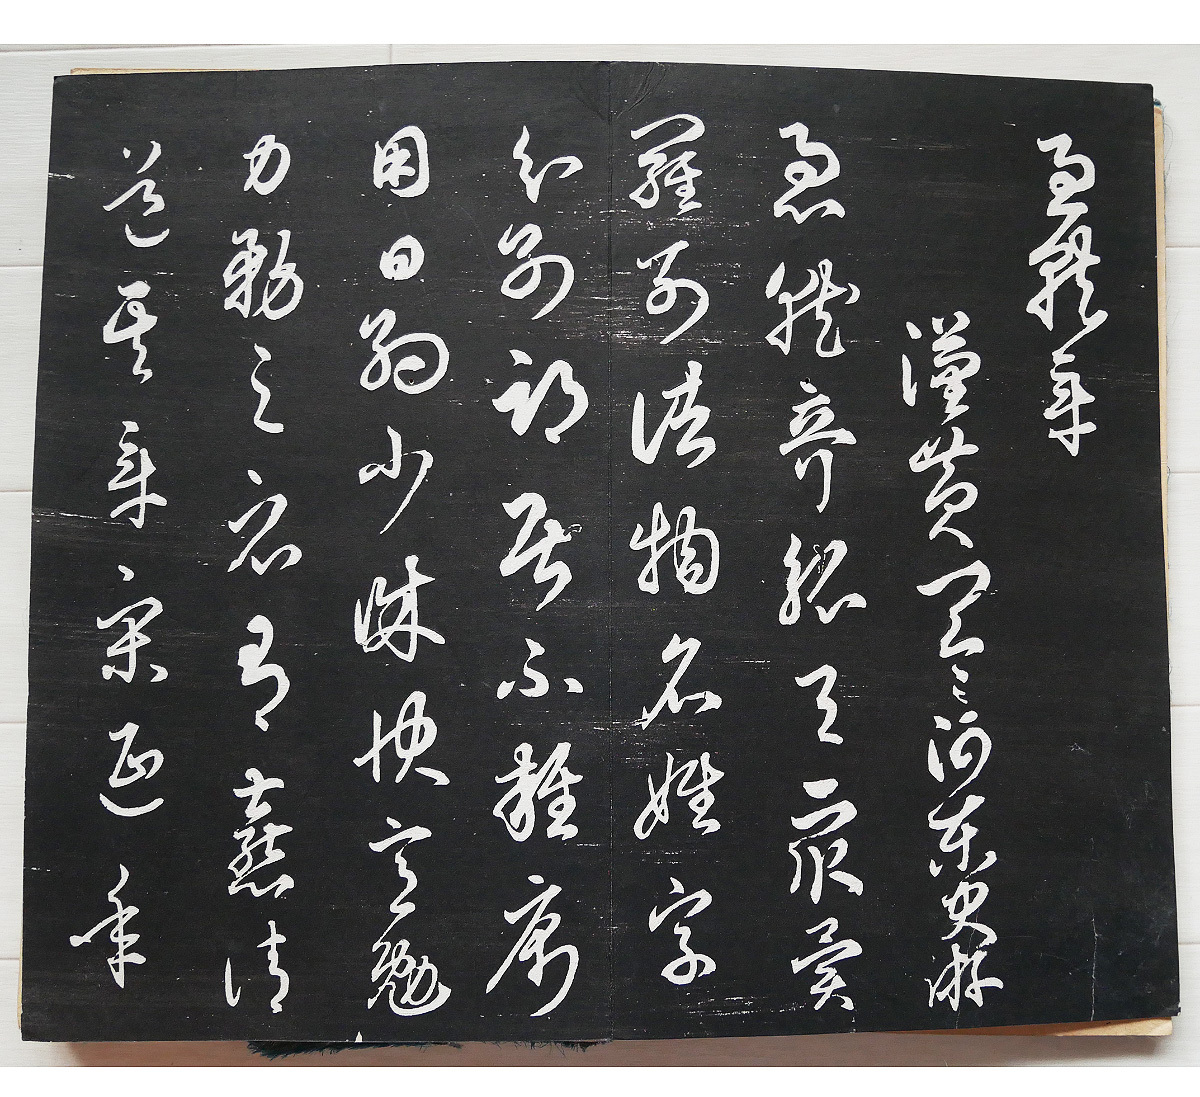 急就章
漢黃門令河東史游
急就奇觚與眾異
羅列諸物名姓字
分別部居不雜廁
用日約少誠快意勉
力務之必有憙請
道其章宋延年